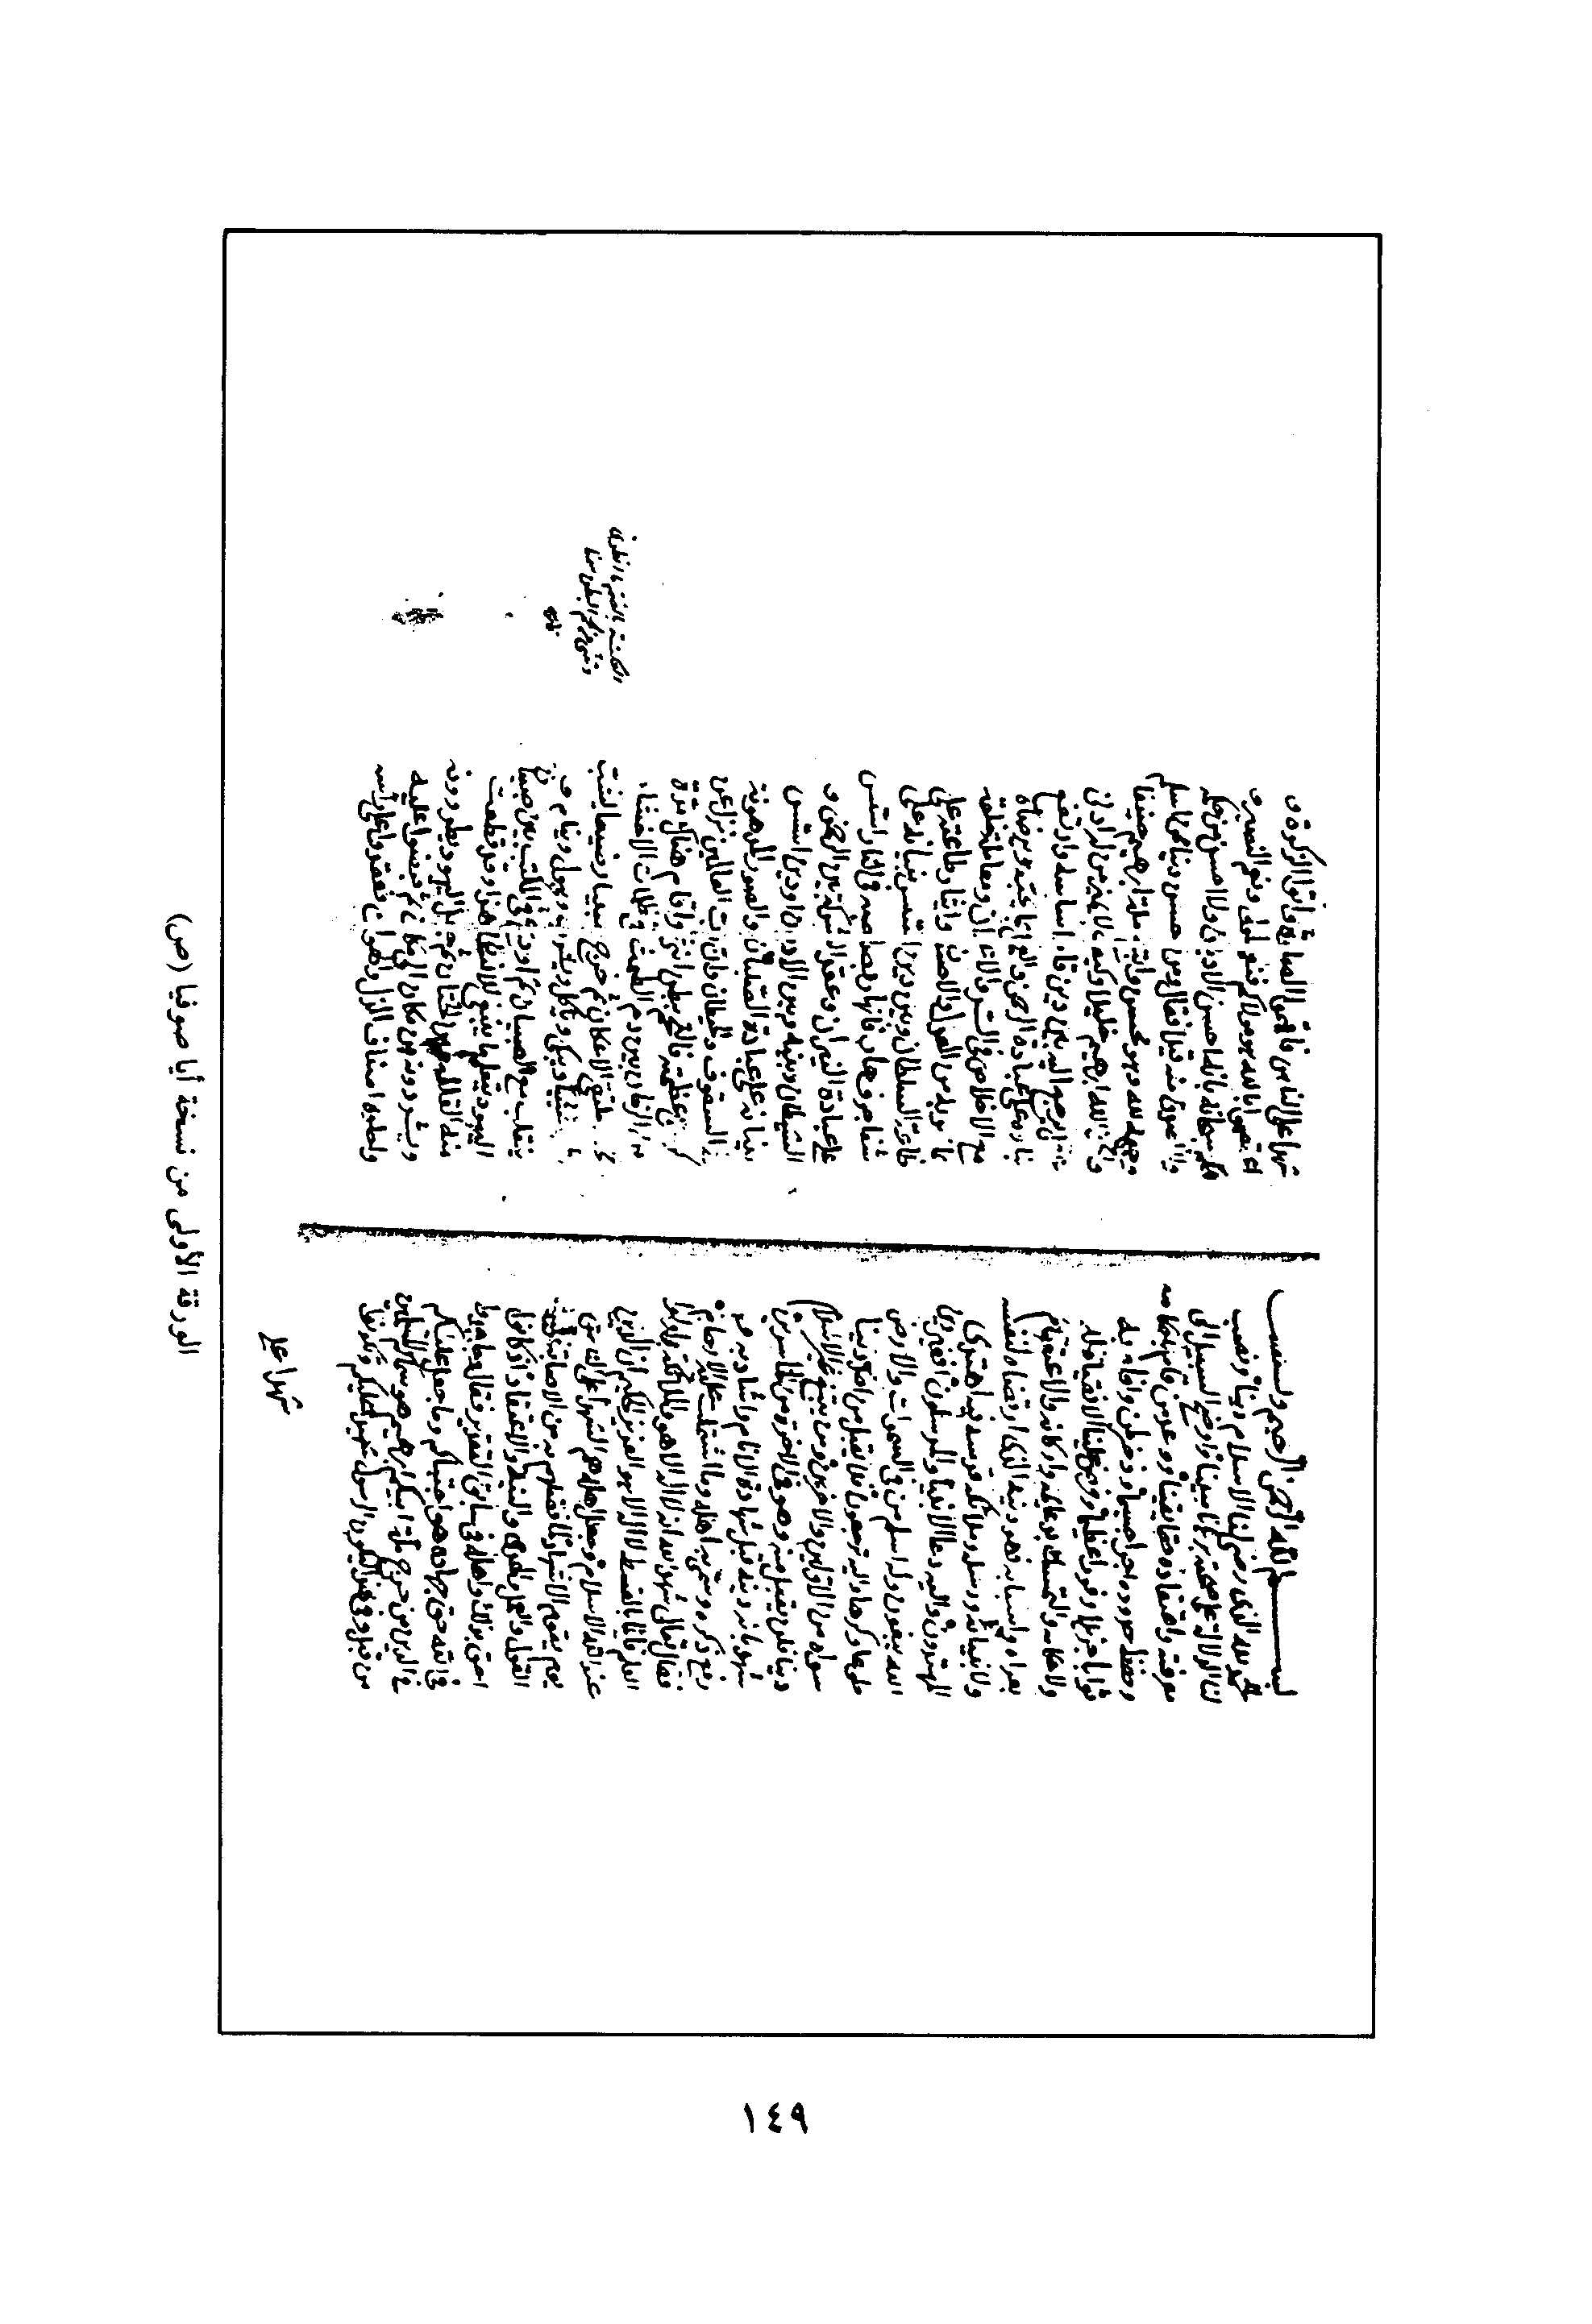 بسم الله الرحمن الرحيم وبه نستعين
الحمد لله الذى رضى لنا الاسلام دينا ونصب
لنا الدلالة على صحته برهانا مبينا واوضح السبيل الى
معرفته واعتقاده حقا يقينا ووعد من قام باحكامه
وحفظ حدوده اجرا جسيما وذخر لمن وافاه به
ثوابا جزيلا وفوزا عظيما وفرض علينا الانقياد له
ولاحكامه والتمسك بدعائمه واركانه والاعتصام
بعراه واسبابه فهو دينه الذى ارتضاه لنفسه
ولانبيائه ورسله وملائكة قدسه فبه اهتدى
المهتدون واليه دعا الانبياء والمرسلون افغير دين
الله يبغون وله اسلم من فى السموات والارض
طوعا وكرها واليه ترجعون فلا يقبل من احد دينا
سواه من الاولين والاخرين ومن يبتغ غير الاسلام
دينا فلن يقبل منه وهو فى الاخرة من الخاسرين
شهد بانه دينه قبل شهادة الانام واشاد به و
رفع ذكره وسمى به اهله وما اشتملت عليه الارحام
فقال تعالى شهد الله انه لا اله الا هو والملائكة واولوا
العلم قائما بالقسط لا اله الا هو العزيز الحكيم ان الدين
عند الله الاسلام وجعل اهله هم الشهداء على
يوم يقوم الاشهاد لما فضلهم به من الاصابة فى
القول والعمل والهدى والنية والاعتقاد اذ كانوا
احق بذلك واهله فى سابق التقدير فقال وجاهدوا
فى الله حق جهاده هو اجتباكم وما جعل عليكم
فى الدين من حرج ملة ابيكم ابرهيم هو سماكم المسلمين
من قبل وفى هذا ليكون الرسول شهيدا عليكم وتكونوا
شهدا على
شهدا على الناس فاقيموا الصلوة واتوا الزكوة و
اعتصموا بالله هو موليكم فنعم المولى ونعم النصير و
حكم سبحانه بانه احسن الاديان ولا احسن من حكمه
ولا اصدق منه قيلا فقال ومن احسن دينا ممن اسلم
وجهه لله وهو محسن واتبع ملة ابرهيم حنيفا
واتخذ الله ابرهيم خليلا وكيف لا يميز من له ادنى
عقل يرجع اليه بين دين قام اساسه وارتفع
بناؤه على عبادة الرحمن والعمل بما يحبه ويرضاه
مع الاخلاص فى السر والاعلان ومعاملة خلقه
بما امر به من العدل والاحسان وايثار طاعته على
طاعة الشيطان وبين دين اسس بنيانه على
شفا جرف هار فانهار بصاحبه فى النار اسس
على عبادة النيران وعقد الشركة بين الرحمن و
الشيطان وبينه وبين الاوثان او دين اسس
بنيانه على عبادة الصلبان والصور المدهونة
فى السقوف والحيطان وان رب العالمين نزل عن
كرسى عظمته فالتحم ببطن انثى واقام هناك مدة
من الزمان بين دم الطمث فى ظلمات الاحشاء
تحت ملتقى الاعكان ثم خرج صبيا رضيعا يشب
شيئا فشيئا ويبكى وياكل ويشرب ويبول وينام و
يتقلب مع الصبيان ثم اودع فى المكتب بين صبيان
اليهود يتعلم ما ينبغى للانسان هذا وقد قطعت
منه القلفة حين الختان ثم جعل اليهود يطردونه
ويشردونه من مكان الى مكان ثم قبضوا عليه
واحلوه اصناف الذل والهوان فعقدوا على راسه
العكنة بالضم ما انطوى
وتثنى من لحم البطن سمنا
الورقة الأولى من نسخة أيا صوفيا (ص)
١٤٩